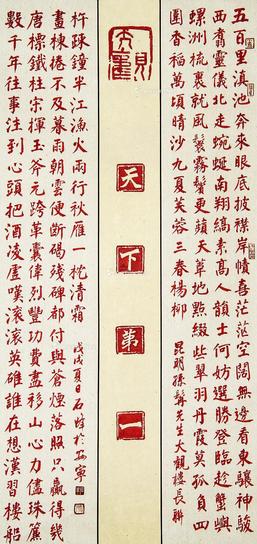 五百里滇池奔來眼底披襟岸幘喜茫茫空闊無邊看東驤神駿
西翥靈儀北走蜿蜒南翔縞素高人韻士何妨選勝登臨趁蟹嶼
螺洲梳裹就風鬟霧鬢更蘋天葦地點綴些翠羽丹霞莫孤負四
圍香稻萬頃晴沙九夏芙蓉三春楊柳
昆明孫髯先生大觀樓長聯
天下第一
數千年往事注到心頭把酒凌虛嘆滾滾英雄誰在想漢習樓船
唐標鐵柱宋揮玉斧元跨革囊偉烈豐功費盡移山心力儘珠簾
畫棟捲不及暮雨朝雲便斷碣殘碑都付與蒼煙落照只贏得幾
杵疎鐘半江漁火兩行秋雁一枕清霜
戊戌夏日石於安寧